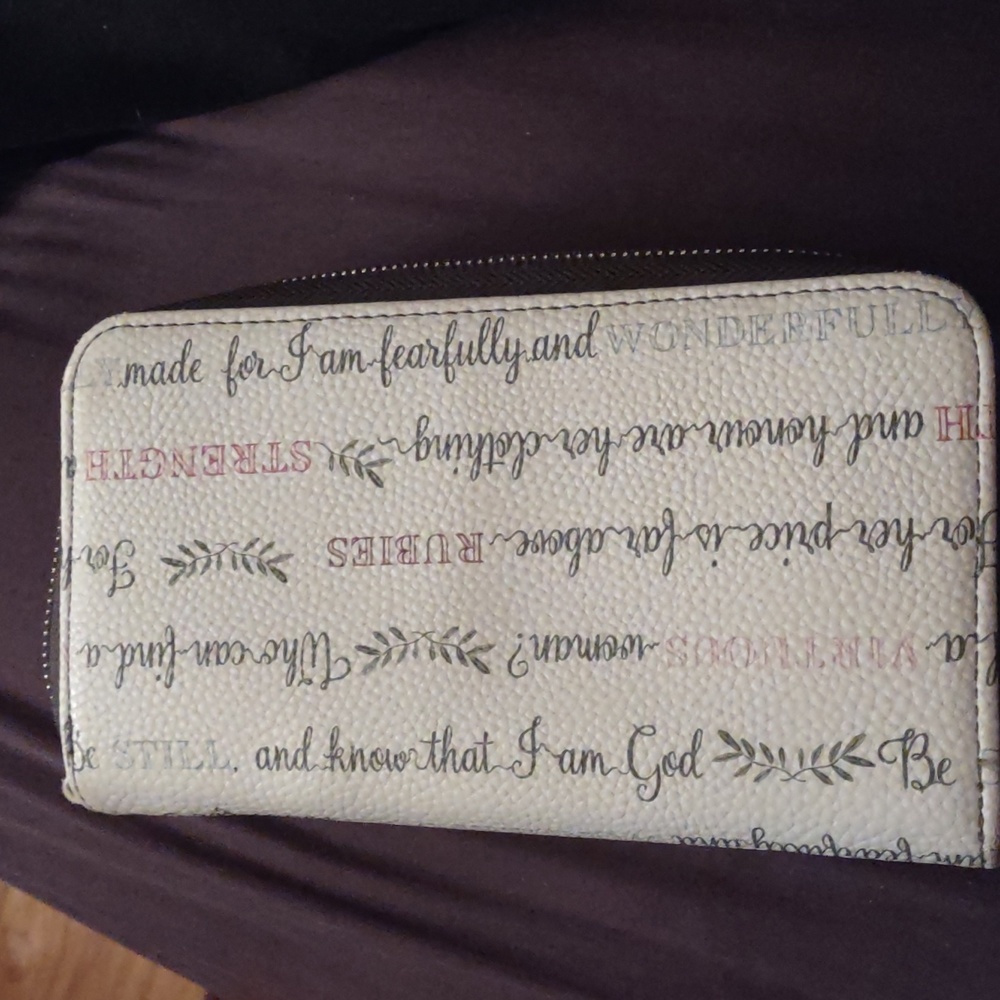 LY made for I am fearfully and WONDERFULLY
TH and honour are her clothing STRENGTH a
For her price is far above RUBIES For h
d a VIRTUOUS woman? Who can find a
Be STILL, and know that I am God Be
am fearfully and